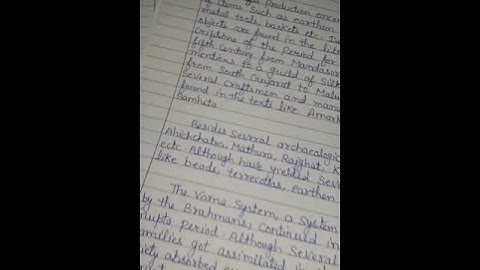 Production encom
of items such as earthen
metal tools, baskets etc.
objects are found in the lit
criptions of the Period for
fifth Century from Mandasor
mentions to a guild of Silk
from South Gujarat to Malw
Several Craftsmen and manu
found in the texts like Amark
Samhita.
Besides Several archaeologic
Ahichchatra, Mathura, Rajghat, K
ectc. Although have yielded Seve
like beads, terrecottas, earthen
The Varna System, a System
by the Brahmans, continued in
upta period. Although Several
amilies got assimilated in
iety absorbed